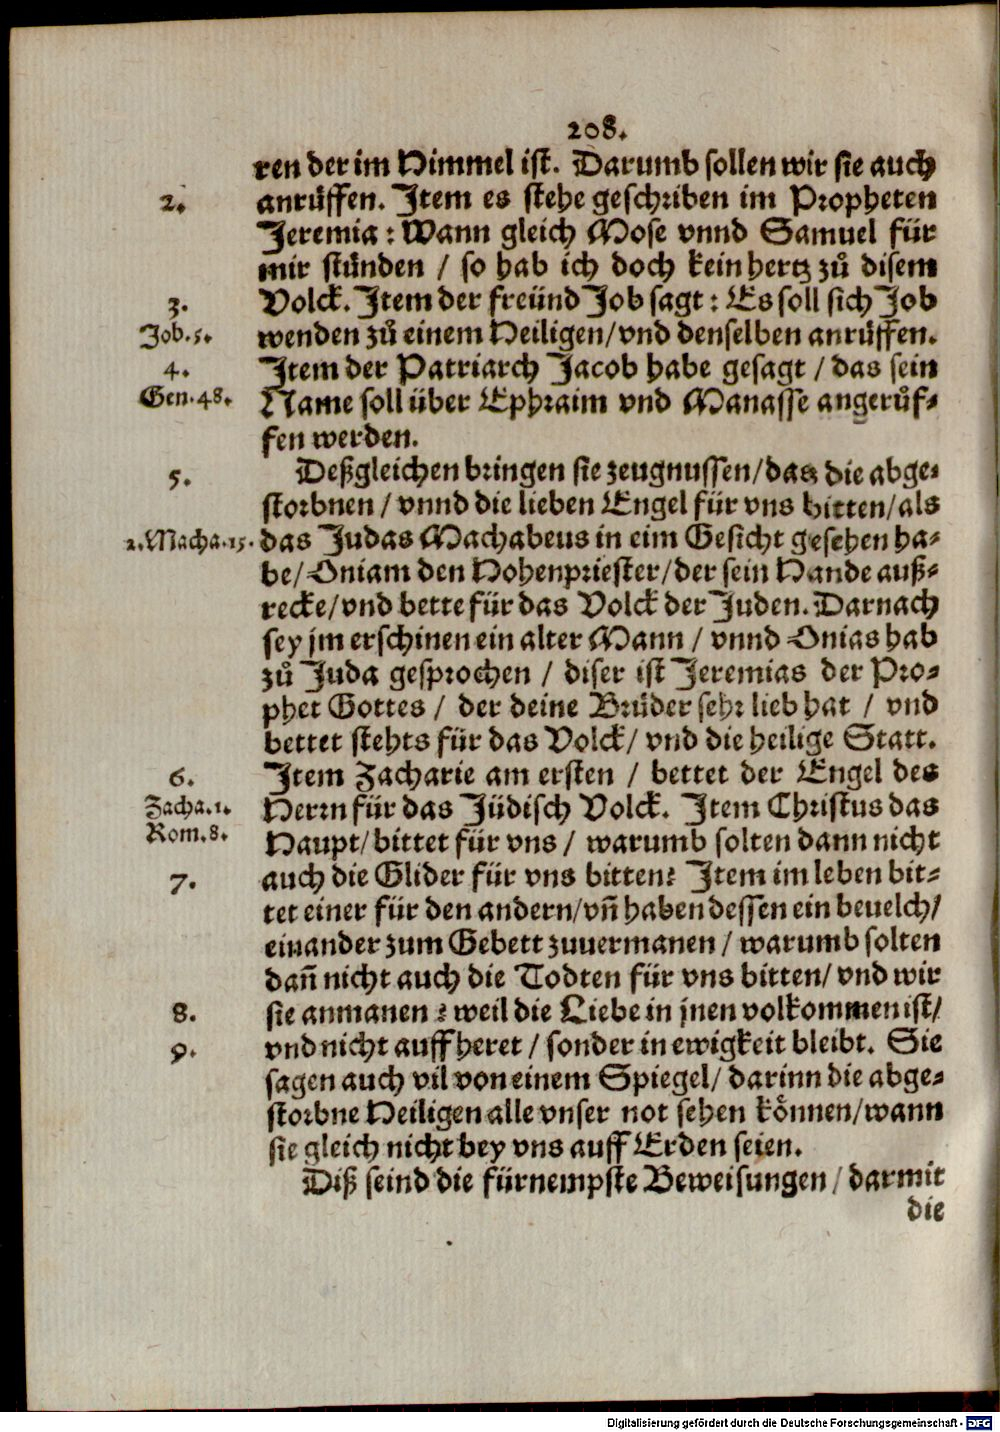 208.
ren der im Himmel ist. Darumb sollen wir sie auch
2. anrüffen. Item es stehe geschriben im Propheten
Jeremia: Wann gleich Mose vnnd Samuel für
mir stünden / so hab ich doch kein hertz zů disem
3. Volck. Item der freünd Job sagt: Es soll sich Job
Job. 5. wenden zů einem Heiligen/vnd denselben anrüffen.
4. Item der Patriarch Jacob habe gesagt / das sein
Gen. 48. Name soll über Ephraim vnd Manasse angerůf-
fen werden.
5. Deßgleichen bringen sie zeugnussen/das die abge-
storbnen / vnnd die lieben Engel für vns bitten/als
2. Macha. 15. das Judas Machabeus in eim Gesicht gesehen ha-
be/Oniam den Hohenpriester/der sein Hande auß-
recke/vnd bette für das Volck der Juden. Darnach
sey jm erschinen ein alter Mann / vnnd Onias hab
zů Juda gesprochen / diser ist Jeremias der Pro-
phet Gottes / der deine Brüder sehr lieb hat / vnd
bettet stehts für das Volck/ vnd die heilige Statt.
6. Item Zacharie am ersten / bettet der Engel des
Zacha. 1. Herrn für das Jüdisch Volck. Item Christus das
Rom. 8. Haupt/bittet für vns / warumb solten dann nicht
7. auch die Glider für vns bitten? Item im leben bit-
tet einer für den andern/vñ haben dessen ein beuelch/
einander zum Gebett zuuermanen / warumb solten
dañ nicht auch die Todten für vns bitten/ vnd wir
8. sie anmanen? weil die Liebe in jnen volkommen ist/
9. vnd nicht auffheret / sonder in ewigkeit bleibt. Sie
sagen auch vil von einem Spiegel/ darinn die abge-
storbne Heiligen alle vnser not sehen können/wann
sie gleich nicht bey vns auff Erden seien.
Diß seind die fürnempste Beweisungen / darmit
die
Digitalisierung gefördert durch die Deutsche Forschungsgemeinschaft - DFG